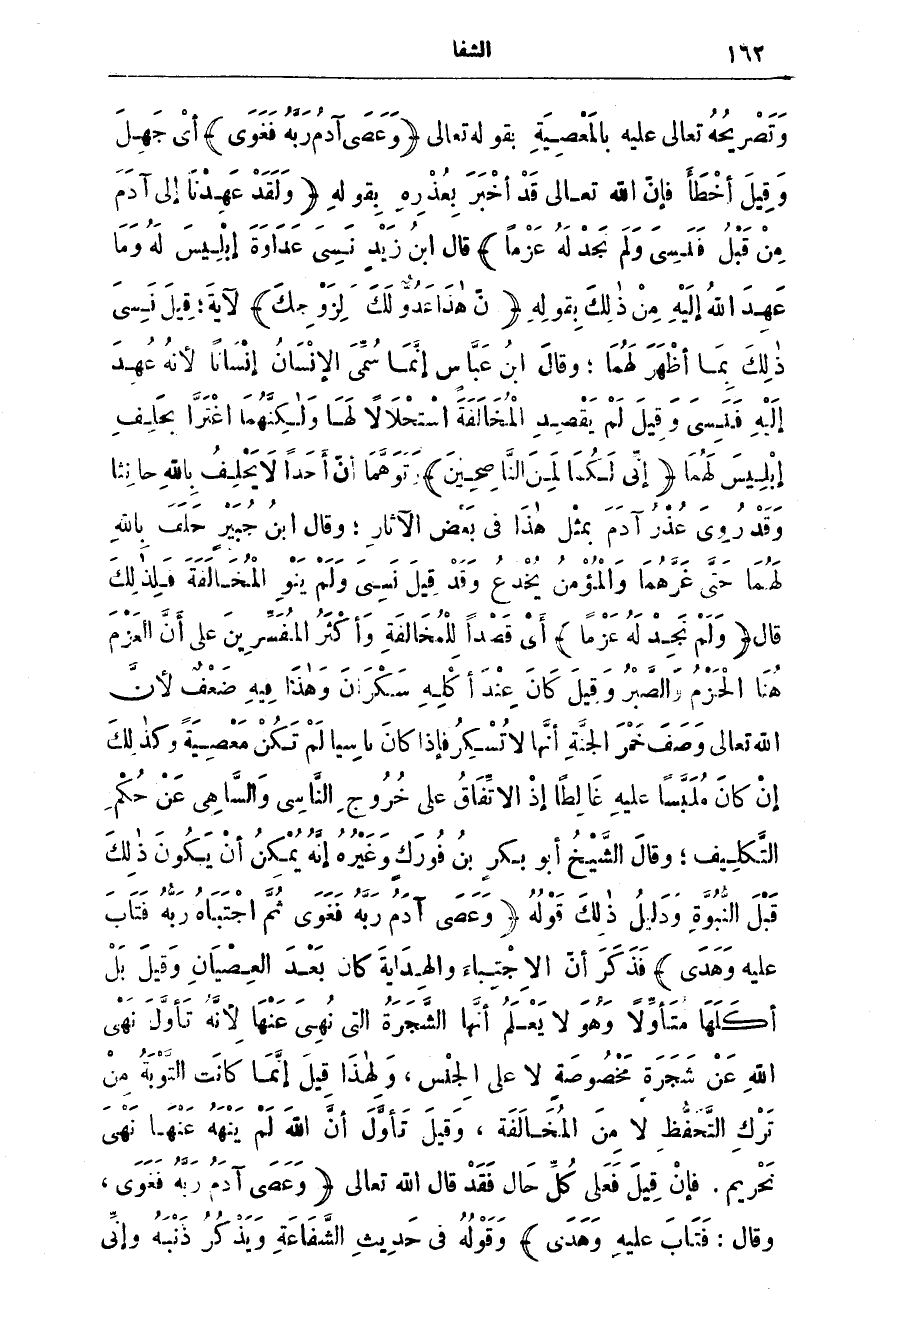 ١٦٢ الشفا
وَتَصْرِيحُهُ تعالى عليه بِالمَعْصِيَةِ بقوله تعالى ﴿وَعَصَى آدَمُ رَبَّهُ فَغَوَى﴾ أىْ جَهِلَ
وَقِيلَ أَخْطَأَ فإنّ الله تعالى قَدْ أَخْبَرَ بِعُذْرِهِ بِقولهِ ﴿وَلَقَدْ عَهِدْنَا إلى آدَمَ
مِنْ قَبْلُ فَنَسِىَ وَلَمْ نَجِدْ لَهُ عَزْماً﴾ قال ابنُ زَيْدٍ نَسِىَ عَدَاوَةَ إبْلِيسَ لَهُ وَمَا
عَهِدَ اللهُ إلَيْهِ مِنْ ذٰلِكَ بقولِهِ ﴿نّ هٰذَا عَدُوٌّ لَكَ لِزَوْجِكَ﴾ لآية؛ قِيلَ نَسِىَ
ذٰلِكَ بِمَا أَظْهَرَ لَهُمَا ؛ وقالَ ابنُ عَبَّاسٍ إنَّمَا سُمِّىَ الإنْسَانُ إنْسَانًا لأنهُ عُهِدَ
إلَيْهِ فَنَسِىَ وَقِيلَ لَمْ يَقْصِدِ الْمُخَالَفَةَ اسْتِحْلَالًا لَهَا وَلٰكِنَّهُمَا اغْتَرَّا بِحَلِفِ
إبْلِيسَ لَهُمَا ﴿إنِّى لَكُمَا لَمِنَ النَّاصِحِينَ﴾ تَوَهَّمَا أنّ أَحَداً لَا يَحْلِفُ بِاللهِ حانِثا
وَقَدْ رُوِىَ عُذْرُ آدَمَ بمثْلِ هٰذَا فى بَعْضِ الآثارِ ؛ وقال ابنُ جُبَيْرٍ حَلَفَ بِاللهِ
لَهُمَا حَتَّى غَرَّهُمَا وَالْمُؤْمِنُ يُخْدَعُ وَقَدْ قِيلَ نَسِىَ وَلَمْ يَنْوِ الْمُخَالَفَةَ فَلِذٰلِكَ
قال ﴿وَلَمْ نَجِدْ لَهُ عَزْمًا﴾ أىْ قَصْداً لِلْمُخَالَفَةِ وَأَكْثَرُ المُفَسِّرِينَ على أَنَّ العَزْمَ
هُنَا الْحَزْمُ وَالصَّبْرُ وَقِيلَ كَانَ عِنْدَ أَكْلِهِ سَكْرَانَ وَهٰذَا فِيهِ ضَعْفٌ لأَنَّ
الله تعالى وَصَفَ خَمْرَ الجَنَّةِ أنَّهَا لا تُسْكِرُ فإذا كانَ ناسِيا لَمْ تَكُنْ مَعْصِيَةً وكذٰلِكَ
إنْ كانَ مُلَبَّسًا عليهِ غَالِطًا إذْ الاتِّفَاقُ على خُرُوجِ النَّاسِى وَالسَّاهِى عَنْ حُكْمِ
التَّكْلِيفِ ؛ وقالَ الشَّيْخُ أبو بكرِ بنُ فُورَكٍ وَغَيْرُهُ إنَّهُ يُمْكِنُ أنْ يَكُونَ ذٰلِكَ
قَبْلَ النُّبُوَّةِ وَدَلِيلُ ذٰلِكَ قَوْلُهُ ﴿وَعَصَى آدَمُ رَبَّهُ فَغَوَى ثُمَّ اجْتَبَاهُ رَبُّهُ فَتَابَ
عليه وَهَدَى﴾ فَذَكَرَ أنّ الاجْتِبَاءَ والهِدَايَةَ كان بَعْدَ العِصْيَانِ وَقِيلَ بَلْ
أَكَلَهَا مُتَأَوِّلًا وَهُوَ لا يَعْلَمُ أنَّهَا الشَّجَرَةُ التى نُهِىَ عَنْهَا لأنَّهُ تَأَوَّلَ نَهْىَ
اللهِ عَنْ شَجَرَةٍ مَخْصُوصَةٍ لا على الجِنْسِ ، وَلِهٰذَا قِيلَ إنَّمَا كانَتِ التَّوْبَةُ مِنْ
تَرْكِ التَّحَفُّظِ لا مِنَ الْمُخَالَفَةِ ، وَقِيلَ تَأَوَّلَ أنَّ اللهَ لَمْ يَنْهَهُ عَنْهَا نَهْىَ
تَحْرِيمٍ . فإنْ قِيلَ فَعَلَى كُلِّ حالٍ فَقَدْ قال الله تعالى ﴿وَعَصَى آدَمُ رَبَّهُ فَغَوَى ،
وقال : فَتَابَ عليهِ وَهَدَى﴾ وَقَوْلُهُ فى حَدِيثِ الشَّفَاعَةِ وَيَذْكُرُ ذَنْبَهُ وإنِّى